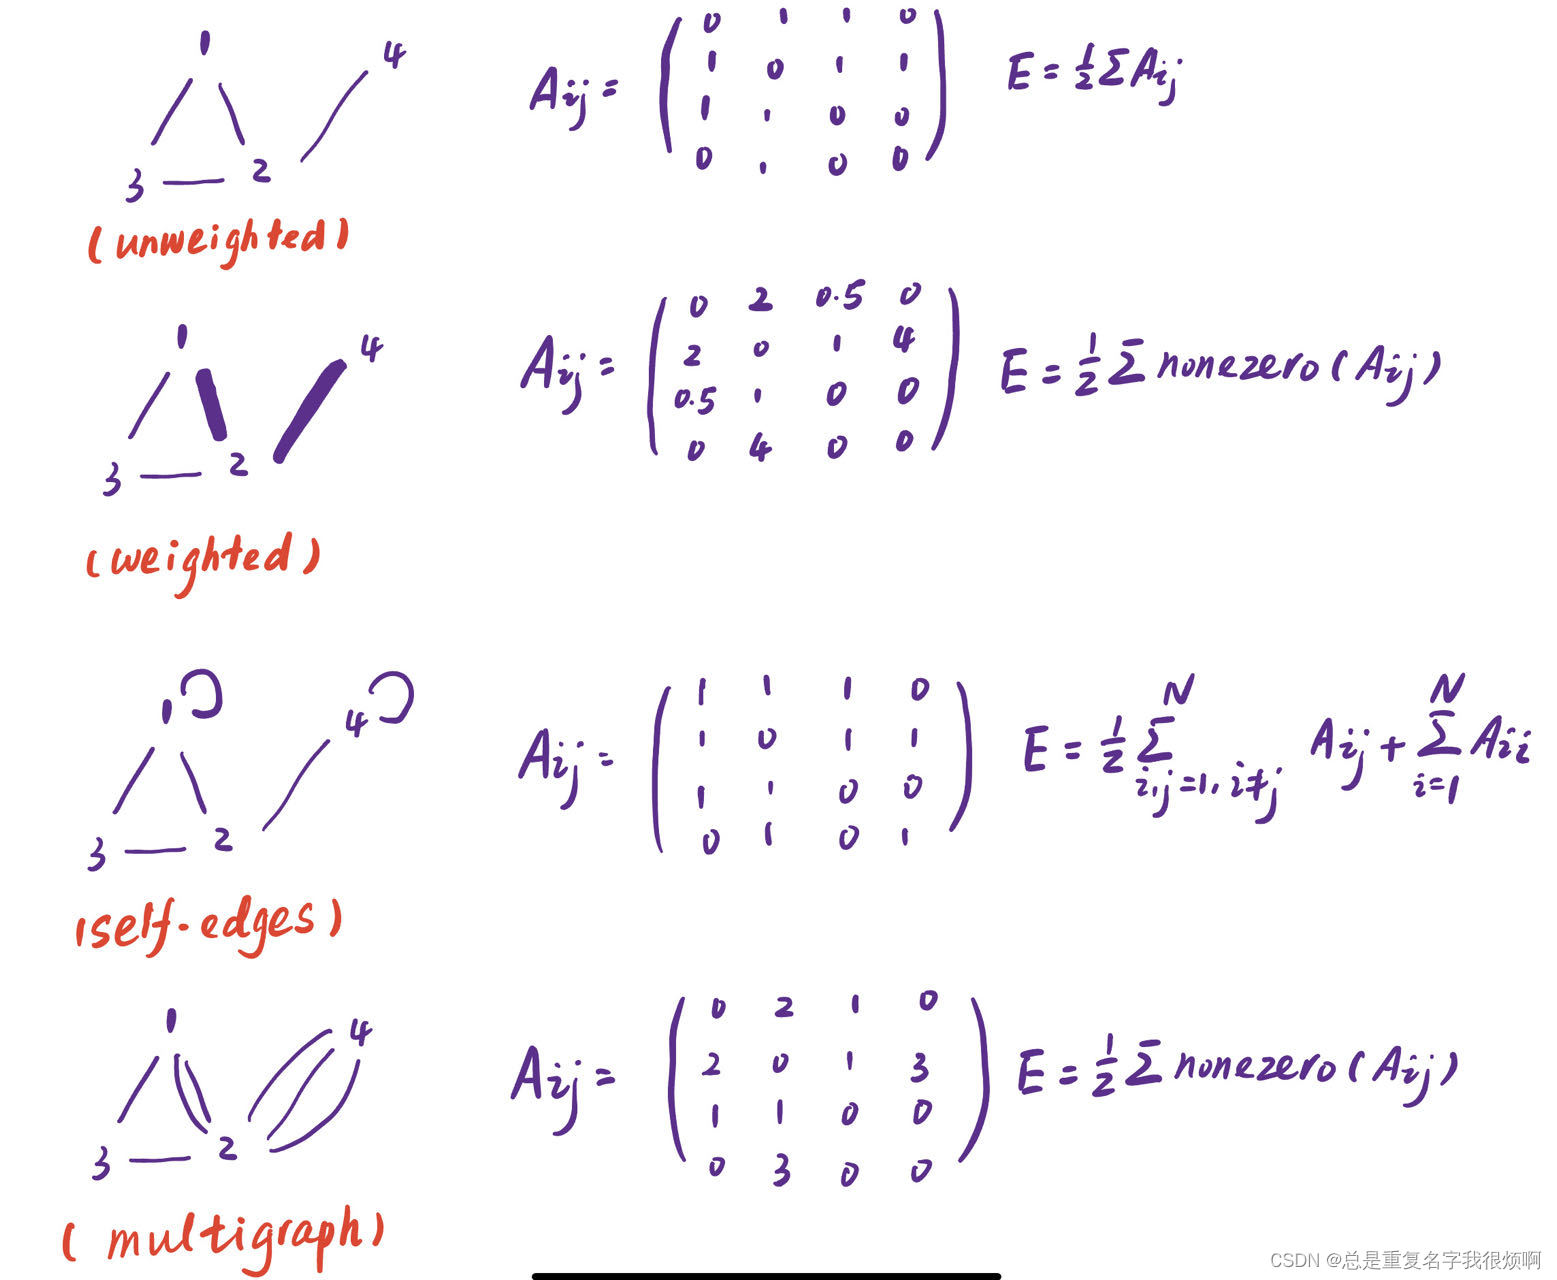 1
4
3 2
(unweighted)
Aij =
0 1 1 0
1 0 1 1
1 1 0 0
0 1 0 0
E = 1/2 Σ Aij
1
4
3 2
(weighted)
Aij =
0 2 0.5 0
2 0 1 4
0.5 1 0 0
0 4 0 0
E = 1/2 Σ nonezero (Aij)
1
4
3 2
(self-edges)
Aij =
1 1 1 0
1 0 1 1
1 1 0 0
0 1 0 1
E = 1/2 Σ^N_{i,j=1, i≠j} Aij + Σ^N_{i=1} Aii
1
4
3 2
(multigraph)
Aij =
0 2 1 0
2 0 1 3
1 1 0 0
0 3 0 0
E = 1/2 Σ nonezero (Aij)
CSDN @总是重复名字我很烦啊